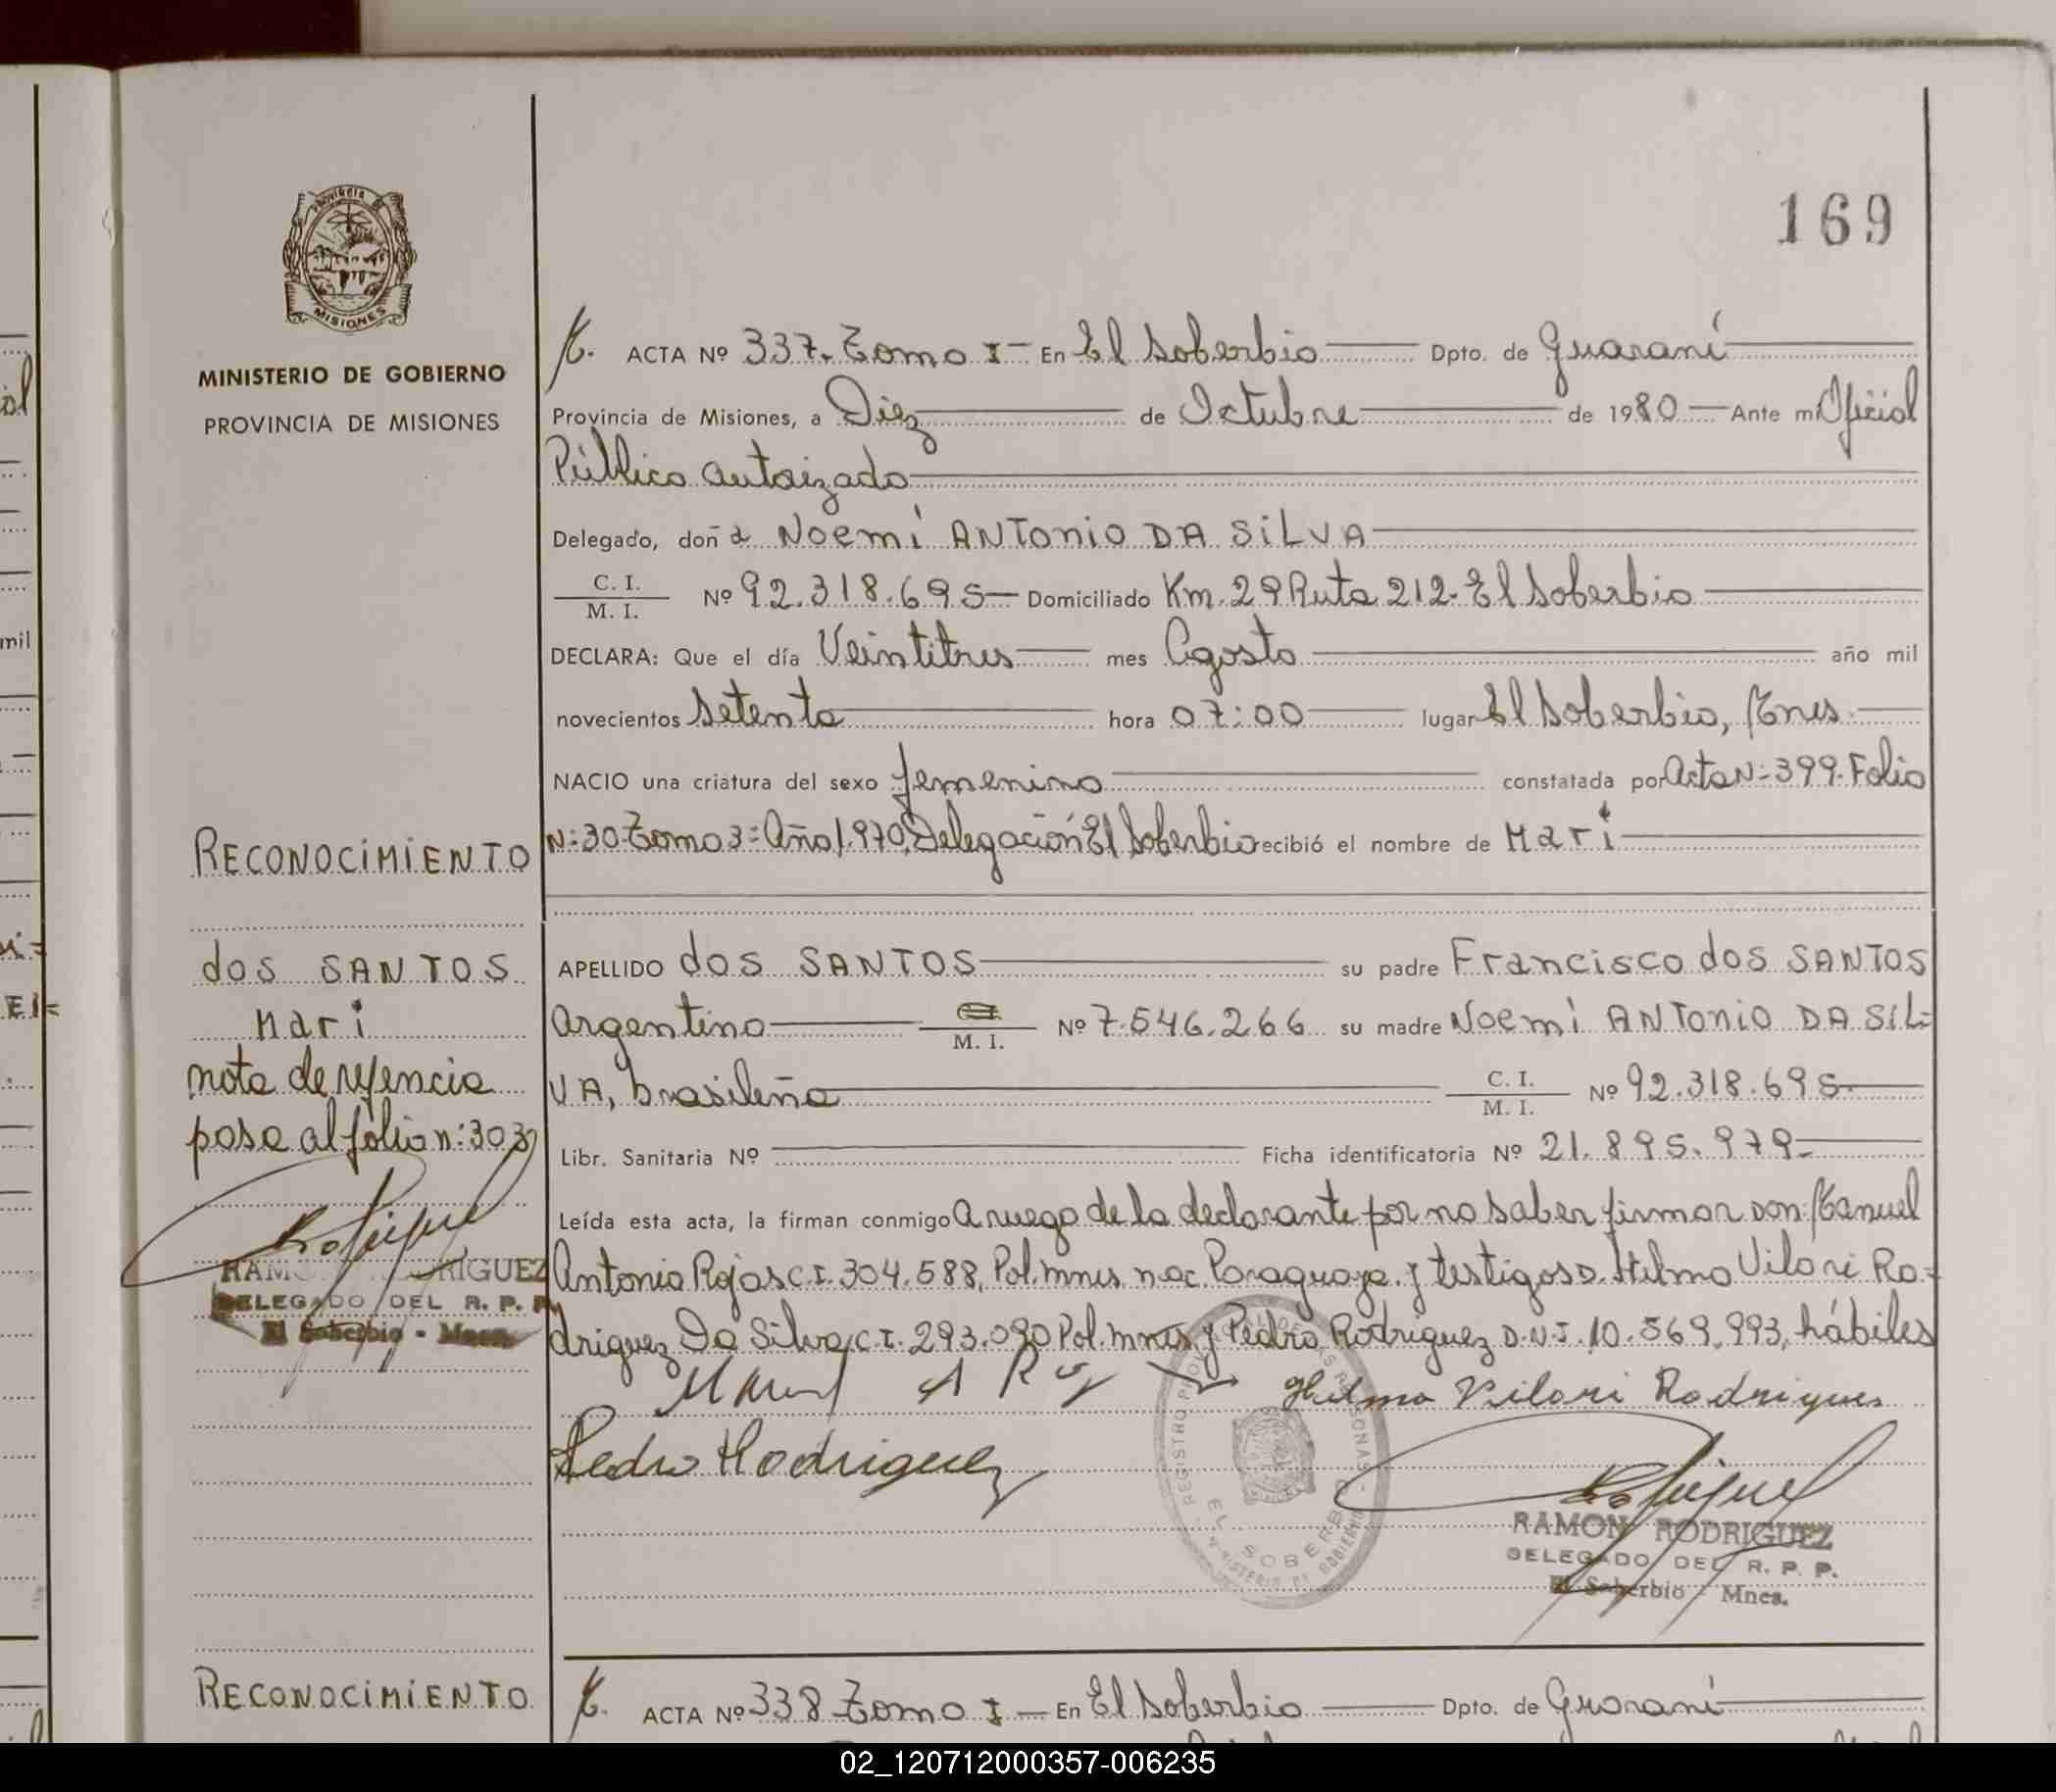 169
Provincia
MISIONES
MINISTERIO DE GOBIERNO
PROVINCIA DE MISIONES
ACTA Nº 337. Tomo I - En El Soberbio Dpto. de Guaraní
Provincia de Misiones, a Diez de Octubre de 1980 Ante mí Oficial
Público autorizado
Delegado, doña Noemí ANTONIO DA SILVA
C. I.
M. I. Nº 92.318.695 Domiciliado Km. 29 Ruta 212. El Soberbio
DECLARA: Que el día Veintitres mes Agosto año mil
novecientos setenta hora 07:00 lugar El Soberbio, Mnes.
NACIO una criatura del sexo femenino constatada por Acta N: 399. Folio
N: 30 Tomo 3= Año 1.970, Delegación El Soberbio recibió el nombre de Mari
APELLIDO dos SANTOS su padre Francisco dos SANTOS
Argentino M. I. Nº 7.546.266 su madre Noemí ANTONIO DA SIL=
VA, brasileña C. I.
M. I. Nº 92.318.695
Libr. Sanitaria Nº Ficha identificatoria Nº 21.895.979
Leída esta acta, la firman conmigo A ruego de la declarante por no saber firmar don: Manuel
Antonio Rojas C.I. 304.588, Pol. mnes nac. Paraguaya y testigos D. Hilmo Vilari Ro=
driguez Da Silva, C.I. 293.090 Pol. mnes y Pedro Rodriguez D.N.I. 10.569.993, hábiles
Hilmo Vilari Rodrigues
Pedro Rodriguez
RAMON RODRIGUEZ
DELEGADO DEL R. P. P.
El Soberbio - Mnes.
RECONOCIMIENTO
dos SANTOS
Mari
nota de refencia
pasa al folio n: 303
RAMON RODRIGUEZ
DELEGADO DEL R. P. P.
El Soberbio - Mnes.
EL SOBERBIO
MINISTERIO DE GOBIERNO
RECONOCIMIENTO
ACTA Nº 338 Tomo I - En El Soberbio Dpto. de Guaraní
mil
02_120712000357-006235